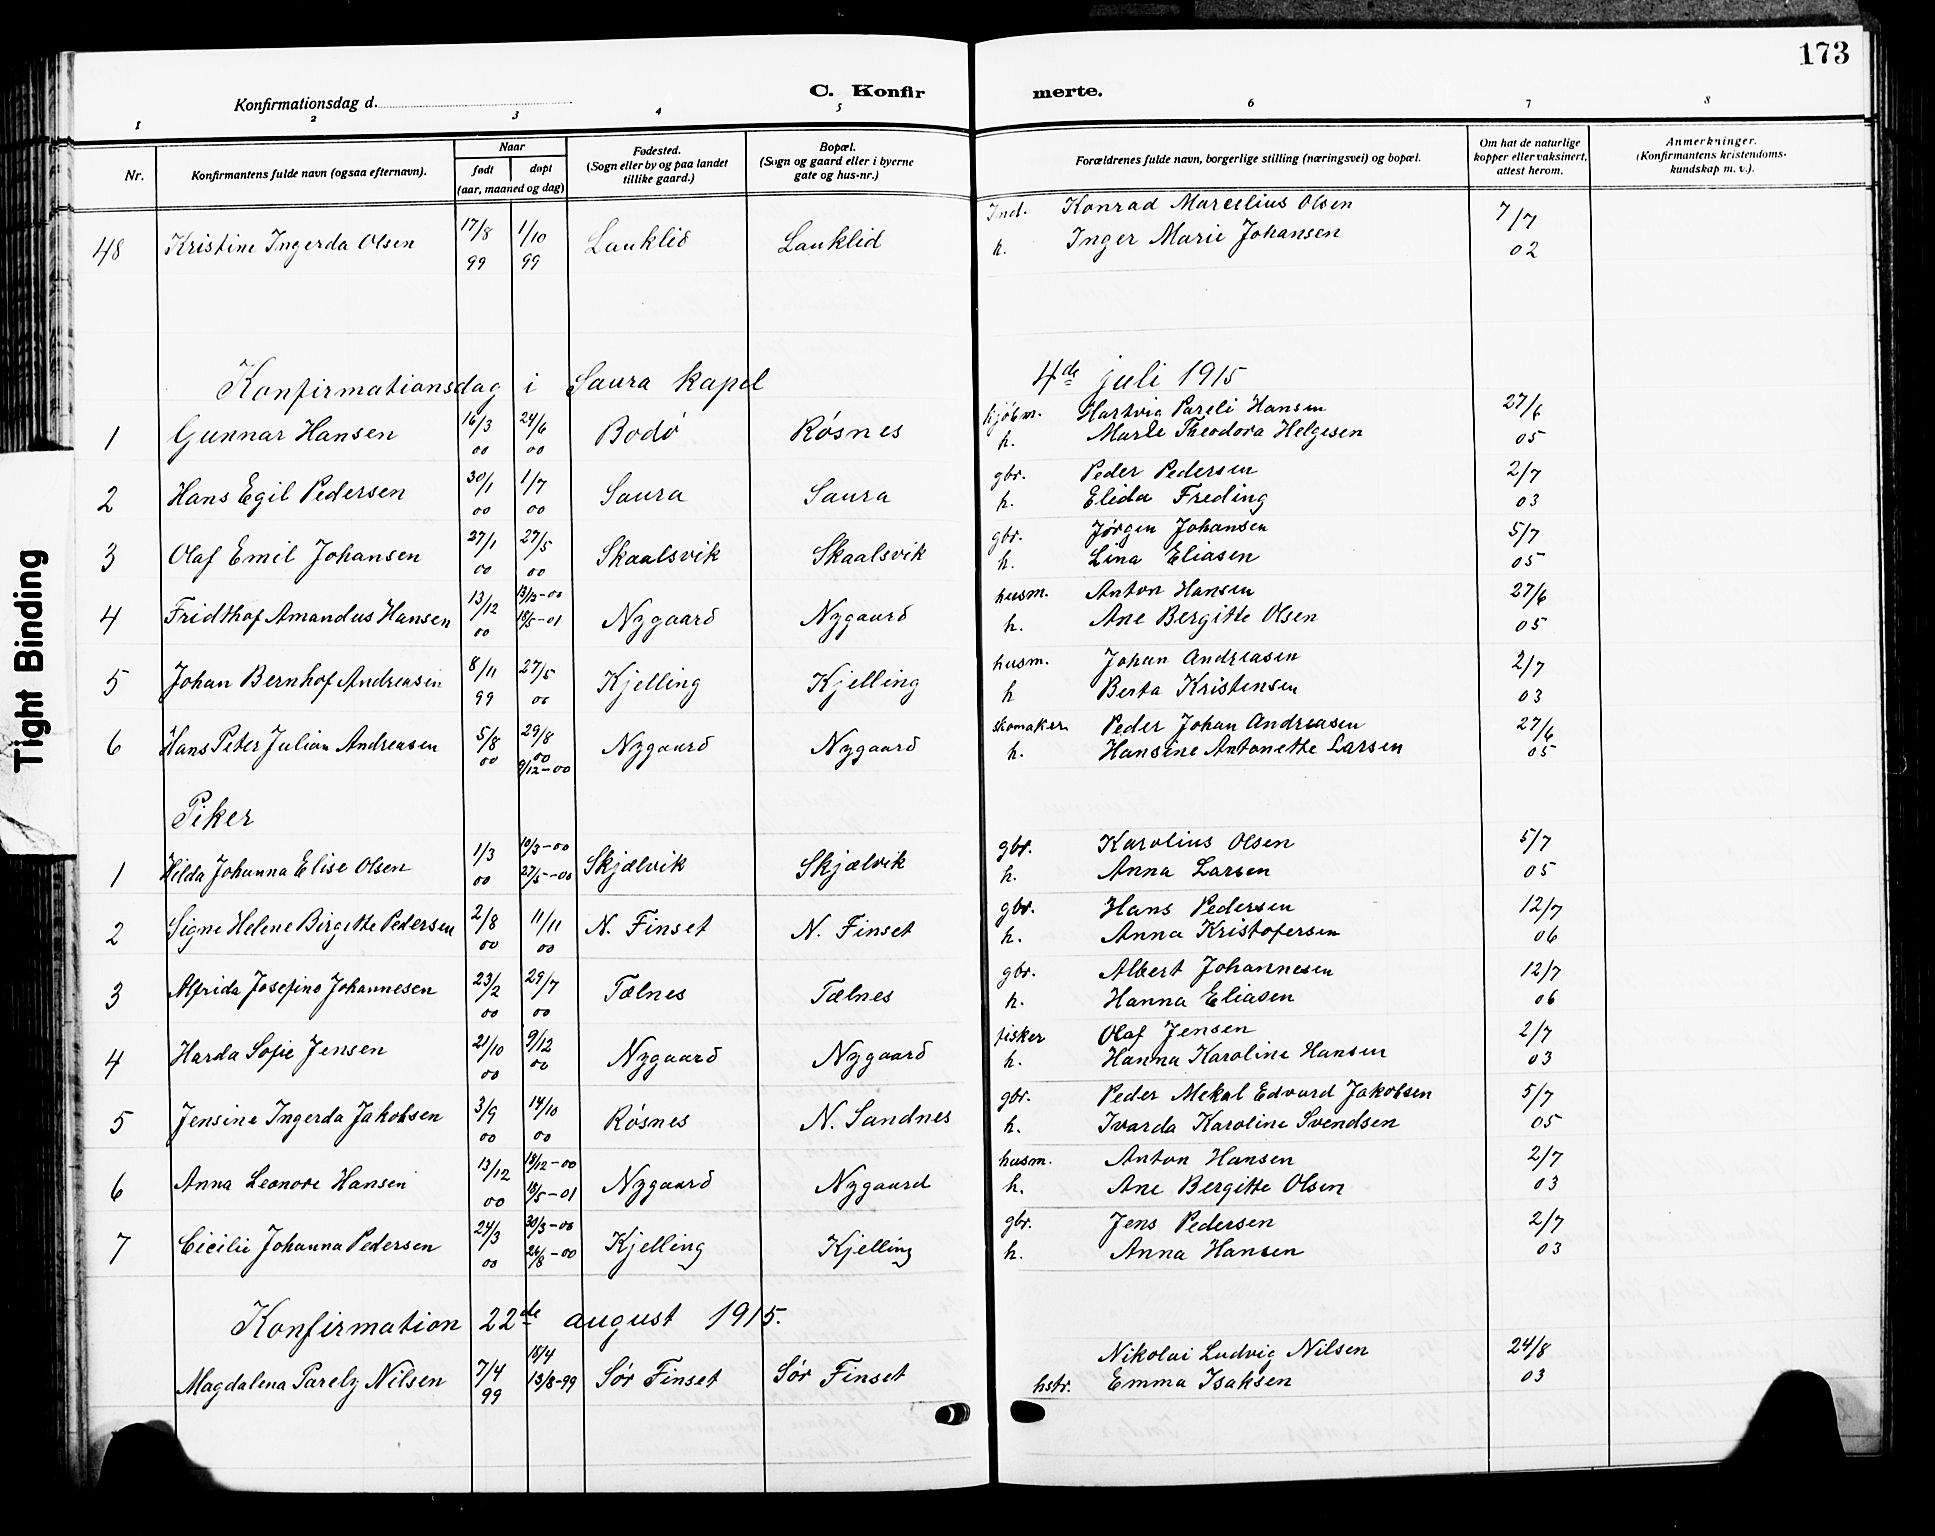 173
Konfirmationsdag d.
C. Konfir merte.
1 2 3 4 5 6 7 8
Nr. Konfirmantens fulde navn (ogsaa efternavn). Naar født døpt (aar, maaned og dag) Fødested. (Sogn eller by og paa landet tillike gaard.) Bopæl. (Sogn og gaard eller i byerne gate og hus-nr.) Forældrenes fulde navn, borgerlige stilling (næringsvei) og bopæl. Om hat de naturlige kopper eller vaksinert, attest herom. Anmerkninger. (Konfirmantens kristendoms-kundskap m. v.).
48 Kristine Ingerda Olsen 17/8 99 1/10 99 Lauklid Lauklid Ind. Konrad Marcelius Olsen 7/7
h. Inger Marie Johansen 02
Konfirmationsdag i Saura kapel 4de juli 1915
1 Gunnar Hansen 16/3 00 24/6 00 Bodø Røsnes kjøbm. Hartvig Pareli Hansen 27/6
h. Marle Theodora Helgesen 05
2 Hans Egil Pedersen 30/1 00 1/7 00 Saura Saura gbr. Peder Pedersen 2/7
h. Elida Freding 03
3 Olaf Emil Johansen 27/1 00 27/5 00 Skaalsvik Skaalsvik gbr. Jørgen Johansen 5/7
h. Lina Eliasen 05
4 Fridthof Amandus Hansen 13/12 00 13/12-00 18/5-01 Nygaard Nygaard husm. Anton Hansen 27/6
h. Ane Bergitte Olsen 05
5 Johan Bernhof Andreasen 8/11 99 27/5 00 Kjelling Kjelling husm. Johan Andreasen 2/7
h Berta Kristensen 03
6 Hans Peter Julian Andreasen 5/8 00 29/8 00 9/12-00 Nygaard Nygaard skomaker Peder Johan Andreasen 27/6
h. Hansine Antonette Larsen 05
Piker
1 Hilda Johanna Elise Olsen 1/3 00 10/3-00 27/5-00 Skjælvik Skjælvik gbr. Karolius Olsen 5/7
h. Anna Larsen 05
2 Signe Helene Birgitte Pedersen 2/8 00 11/11 00 N. Finset N. Finset gbr. Hans Pedersen 12/7
h. Anna Kristofersen 06
3 Alfrida Josefine Johannesen 23/2 00 29/7 00 Tælnes Tælnes gbr. Albert Johannesen 12/7
h. Hanna Eliasen 06
4 Harda Sofie Jensen 21/10 00 9/12 00 Nygaard Nygaard fisker Olaf Jensen 2/7
h. Hanna Karoline Hansen 03
5 Jensine Ingerda Jakobsen 3/9 00 14/10 00 Røsnes N. Sandnes gbr. Peder Mekal Edvard Jakobsen 5/7
h. Ivarda Karoline Svendsen 05
6 Anna Leonore Hansen 13/12 00 13/12-00 18/5-01 Nygaard Nygaard husm. Anton Hansen 2/7
h. Ane Bergitte Olsen 03
7 Cicilie Johanna Pedersen 24/3 00 30/3-00 26/8-00 Kjelling Kjelling gbr. Jens Pedersen 2/7
h. Anna Hansen 03
Konfirmation 22de august 1915.
Magdalena Parely Nilsen 7/4 99 18/4 13/8-99 Sør Finset Sør Finset Nikolai Ludvig Nilsen 24/8
hstr. Emma Isaksen 03
Tight Binding